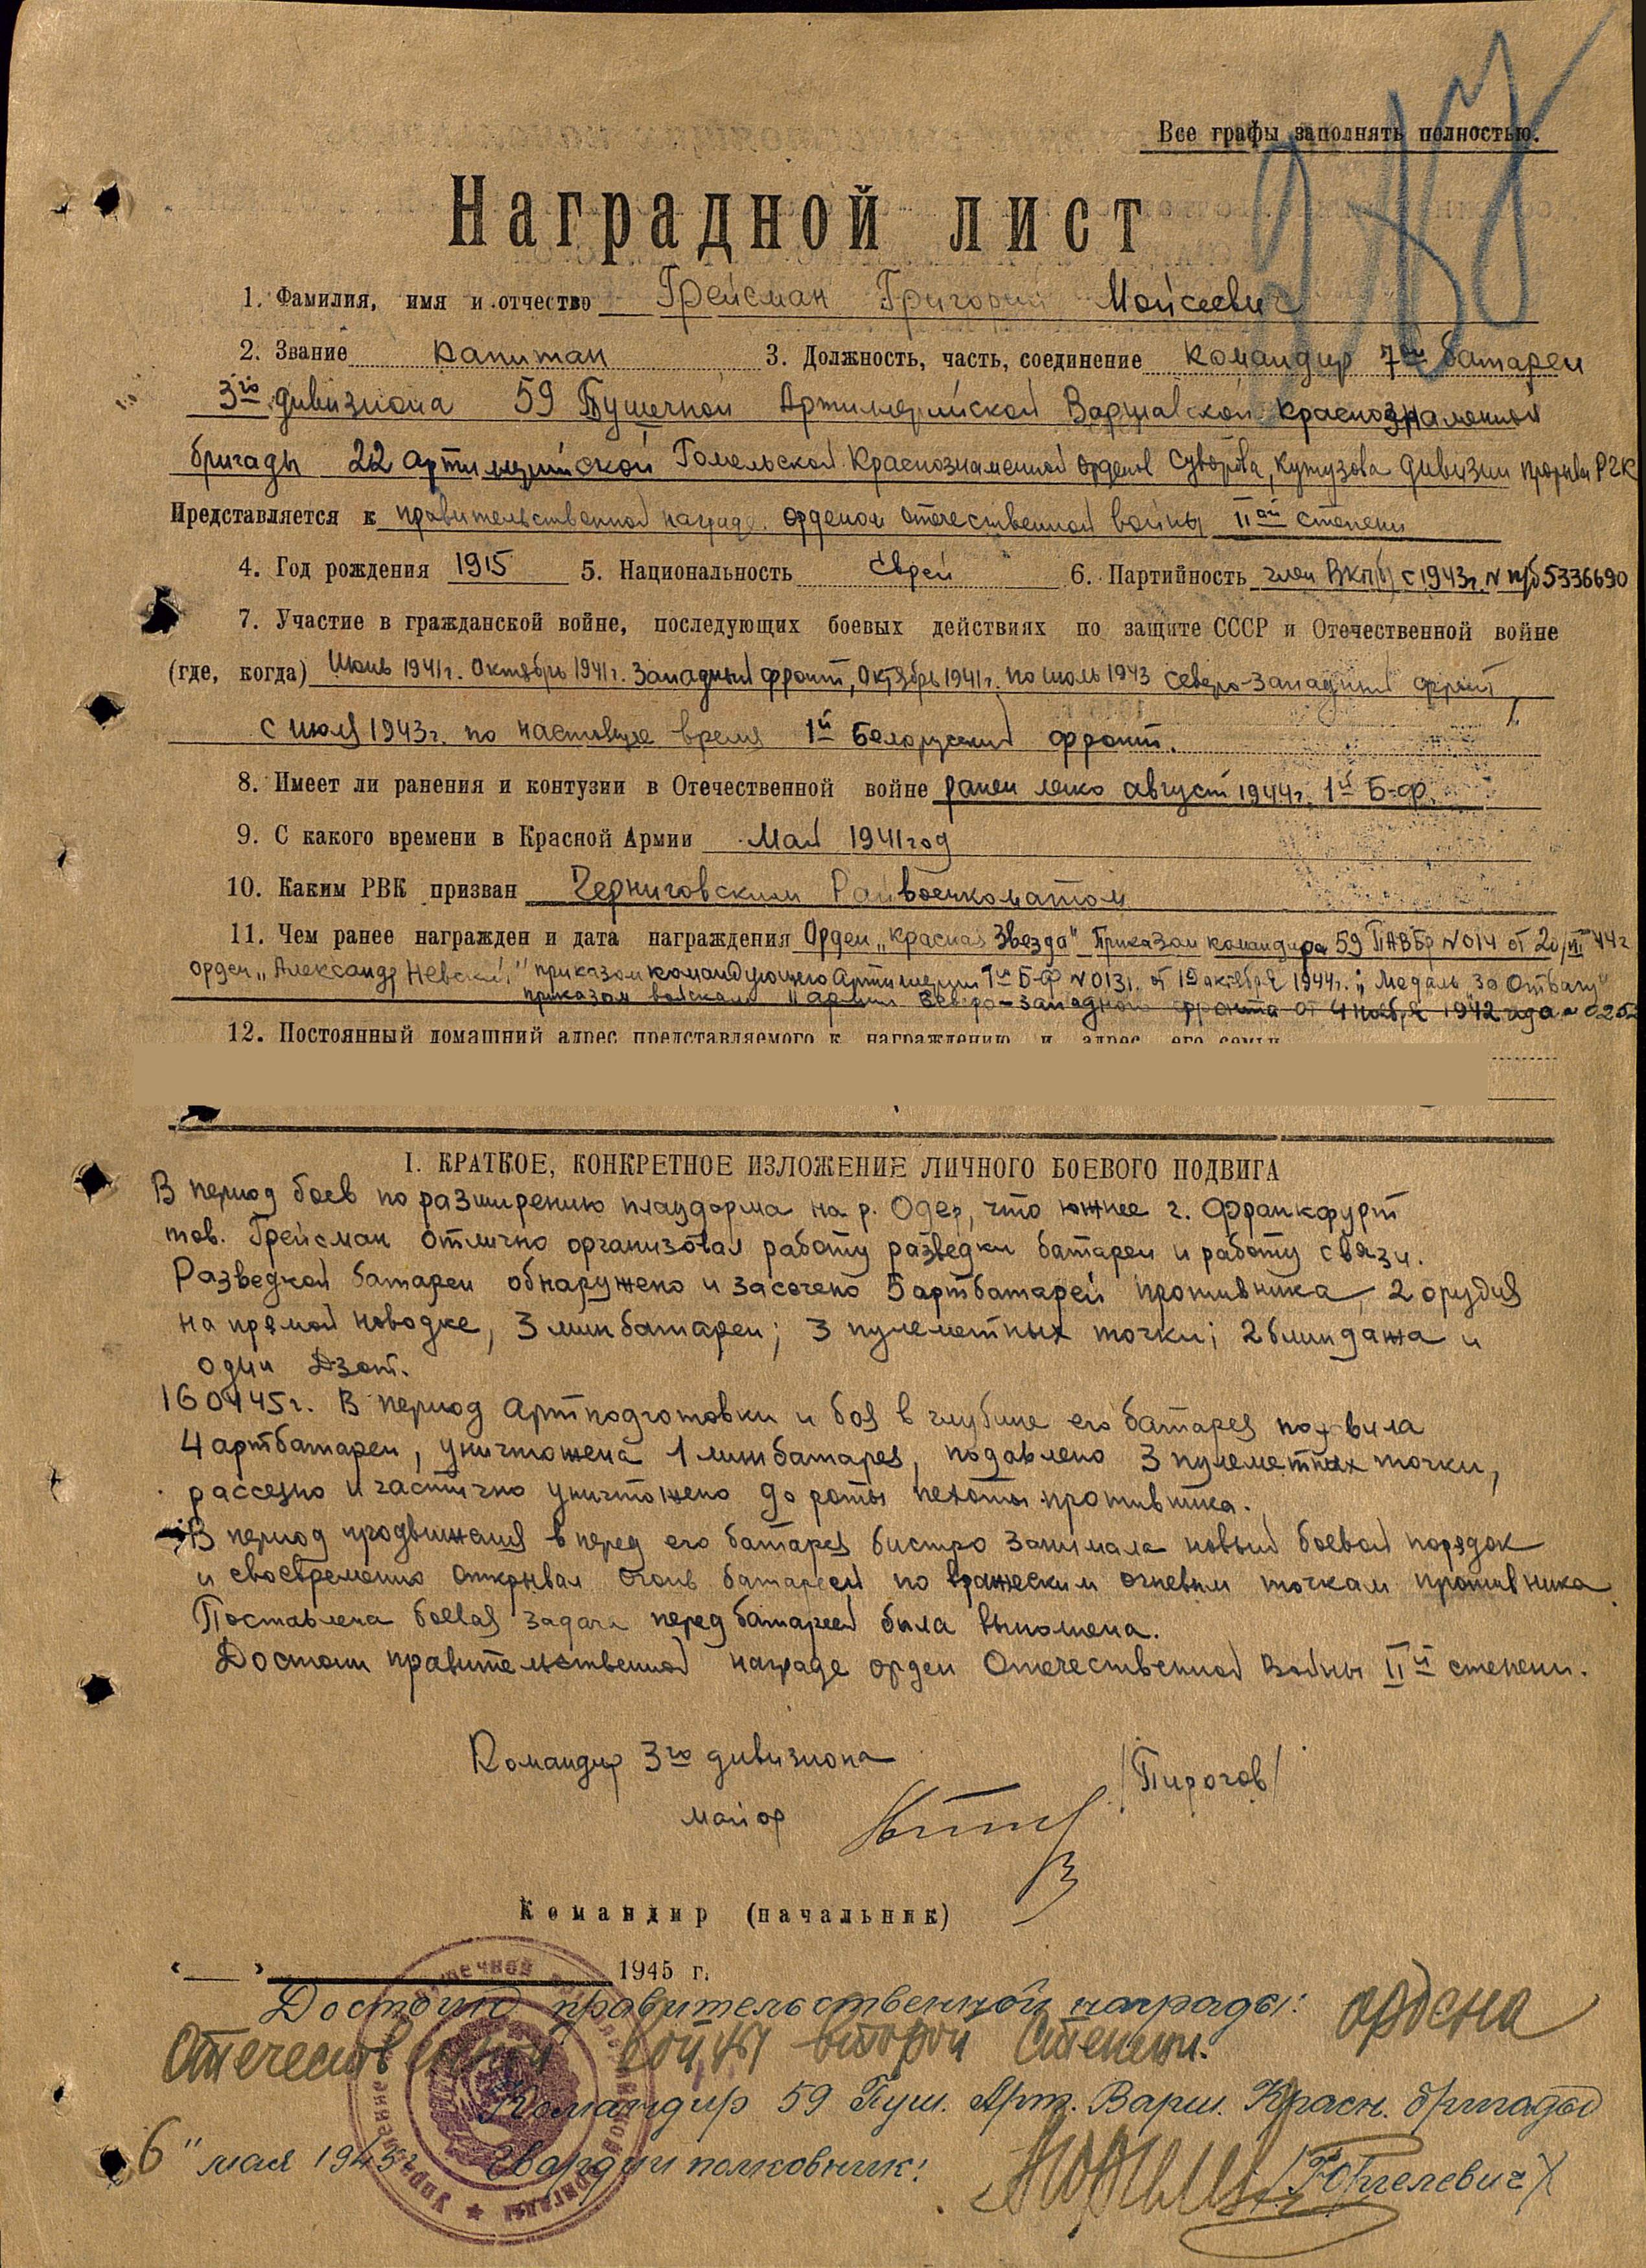 Все графы заполнять полностью.
Наградной лист
1. Фамилия, имя и отчество Грейсман Григорий Мойсеевич
2. Звание Капитан 3. Должность, часть, соединение командир 7ой батареи
3го дивизиона 59 Пушечной Артиллерийской Варшавской Краснознаменной
бригады 22 артиллерийской Гомельской Краснознаменной орденов Суворова, Кутузова дивизии прорыва РГК
Представляется к правительственной награде. орденом отечественной войны IIой степени
4. Год рождения 1915 5. Национальность Еврей 6. Партийность член ВКП(б) с 1943г. N п/б 5336690
7. Участие в гражданской войне, последующих боевых действиях по защите СССР и Отечественной войне
(где, когда) Июнь 1941г. Октябрь 1941г. Западный фронт, Октябрь 1941г. по июль 1943 Северо-Западный фронт,
с июля 1943г. по настояще время 1й Белорусский фронт.
8. Имеет ли ранения и контузии в Отечественной войне ранен легко август 1944г. 1й Б-Ф.
9. С какого времени в Красной Армии Май 1941 год
10. Каким РВК призван Черниговским Райвоенкоматом
11. Чем ранее награжден и дата награждения Орден „Красная Звезда" Приказом командира 59 ПАВБр N014 от 44г
орден „Александр Невский" приказом командующего Артиллерии 1й Б-Ф N0131. от 19 октября 1944г.; Медаль „За Отвагу"
приказом войскам 11 армии Северо-Западного фронта от 4 ноября 1942 года
12. Постоянный домашний адрес представляемого к награждению и адрес его семьи
I. КРАТКОЕ, КОНКРЕТНОЕ ИЗЛОЖЕНИЕ ЛИЧНОГО БОЕВОГО ПОДВИГА
В период боев по разширению плацдарма на р. Одер, что южнее г. Франкфурт
тов. Грейсман отлично организовал работу разведки батареи и работу связи.
Разведкой батареи обнаружено и засечено 5 артбатарей противника, 2 орудия
на прямой новодке, 3 минбатареи; 3 пулеметных точки; 2 блиндажа и
один Дзот.
160445г. В период Артподготовки и боя в глубине его батарея подавила
4 артбатареи, уничтожена 1 минбатарея, подавлено 3 пулеметных точки,
рассеяно и частично уничтожено до роты пехоты противника.
В период продвижения вперед его батарея быстро занимала новый боевой порядок
и своевременно открывал огонь батареей по вражеским огневым точкам противника.
Поставлена боевая задача перед батареей была выполнена.
Достоин правительственной награде орден Отечественной Войны IIй степени.
Командир 3го дивизиона
майор /Пирогов/
Командир (начальник)
„ " 1945 г.
Достоин правительственной награды: ордена
Отечественной войны второй степени.
Командир 59 Пуш. Арт. Варш. Красн. бригады
6" мая 1945г Гвардии полковник: